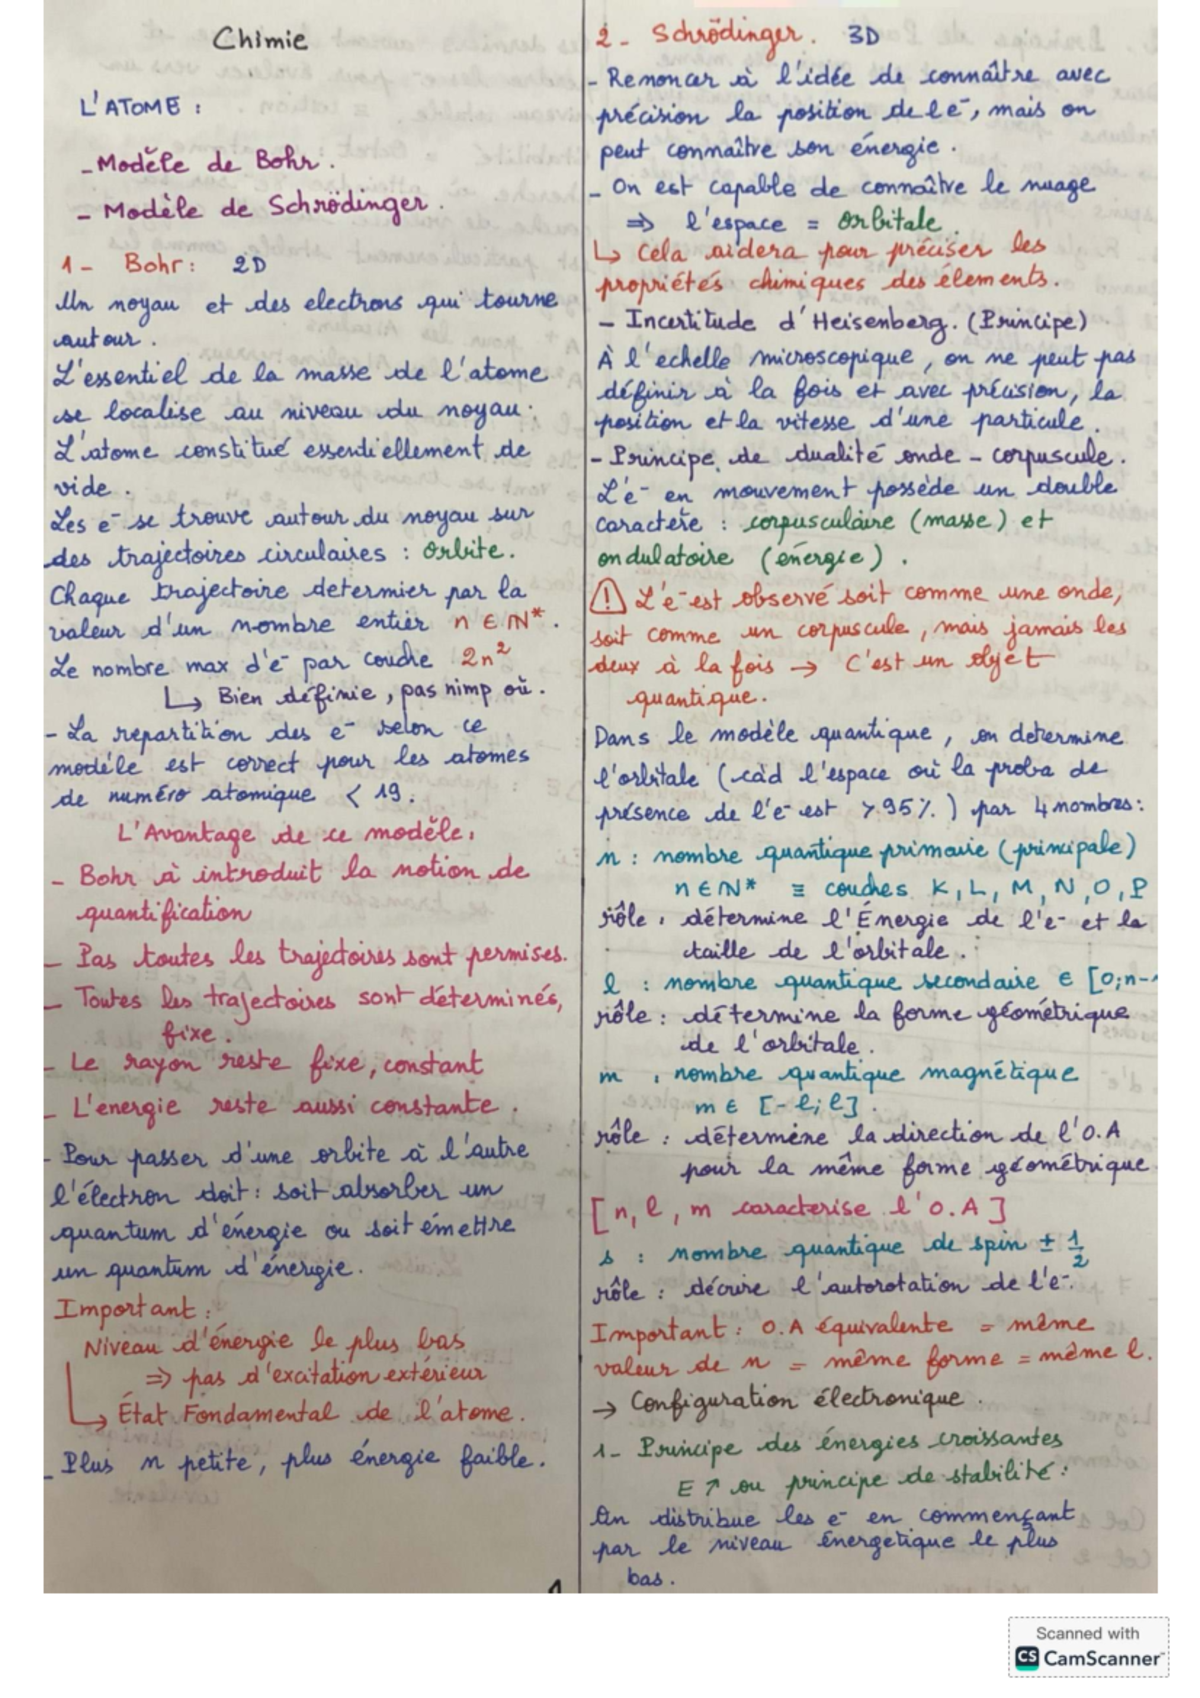 Chimie
L'ATOME :
- Modèle de Bohr.
- Modèle de Schrödinger.
1 - Bohr : 2D
Un noyau et des electrons qui tourne
autour.
L'essentiel de la masse de l'atome
se localise au niveau du noyau.
L'atome constitué essentiellement de
vide.
Les e⁻ se trouve autour du noyau sur
des trajectoires circulaires : Orbite.
Chaque trajectoire determier par la
valeur d'un nombre entier n ∈ ℕ*.
Le nombre max d'e⁻ par couche 2n²
↳ Bien définie, pas nimp où.
- La repartition des e⁻ selon ce
modéle est correct pour les atomes
de numéro atomique < 19.
L'Avantage de ce modèle.
- Bohr à introduit la notion de
quantification
- Pas toutes les trajectoires sont permises.
- Toutes les trajectoires sont déterminés,
fixe.
- Le rayon reste fixe, constant
- L'energie reste aussi constante.
- Pour passer d'une orbite à l'autre
l'électron doit : soit absorber un
quantum d'énergie ou soit émettre
un quantum d'énergie.
Important :
Niveau d'énergie le plus bas
⇒ pas d'excitation extérieur
↳ État Fondamental de l'atome.
- Plus n petite, plus énergie faible.
2 - Schrödinger. 3D
- Renoncer à l'idée de connaître avec
précision la position de l e⁻, mais on
peut connaître son énergie.
- On est capable de connaître le nuage
⇒ l'espace = Orbitale
↳ Cela aidera pour préciser les
propriétés chimiques des élements.
- Incertitude d'Heisenberg. (Principe)
À l'echelle microscopique, on ne peut pas
définir à la fois et avec précision, la
position et la vitesse d'une particule.
- Principe de dualité onde - corpuscule.
L'e⁻ en mouvement possède un double
caractère : corpusculaire (masse) et
ondulatoire (énergie).
⚠ L'e⁻ est observé soit comme une onde,
soit comme un corpuscule, mais jamais les
deux à la fois → C'est un objet
quantique.
Dans le modèle quantique, on determine
l'orbitale (càd l'espace où la proba de
présence de l'e⁻ est > 95%.) par 4 nombres :
n : nombre quantique primaire (principale)
n ∈ ℕ* ≡ couches K, L, M, N, O, P
rôle : détermine l'Énergie de l'e⁻ et la
taille de l'orbitale.
l : nombre quantique secondaire ∈ [0; n-
rôle : détermine la forme géométrique
de l'orbitale.
m : nombre quantique magnétique
m ∈ [-l; l].
rôle : détermène la direction de l'O.A
pour la même forme géométrique
[n, l, m caracterise l'O.A]
s : nombre quantique de spin ± 1/2
rôle : décrire l'autorotation de l'e⁻.
Important : O.A équivalente = même
valeur de n = même forme = même l.
→ Configuration électronique.
1 - Principe des énergies croissantes
E ↗ ou principe de stabilité :
On distribue les e⁻ en commençant
par le niveau énergetique le plus
bas.
1
Scanned with
CS CamScanner